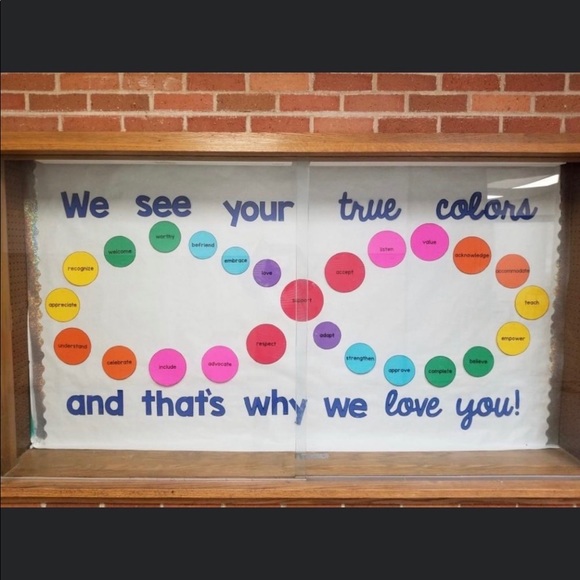 We see your true colors
worthy
welcome
befriend
embrace
love
recognize
appreciate
understand
celebrate
include
advocate
respect
support
accept
listen
value
acknowledge
accommodate
teach
empower
believe
complete
approve
strengthen
adapt
and that's why we love you!